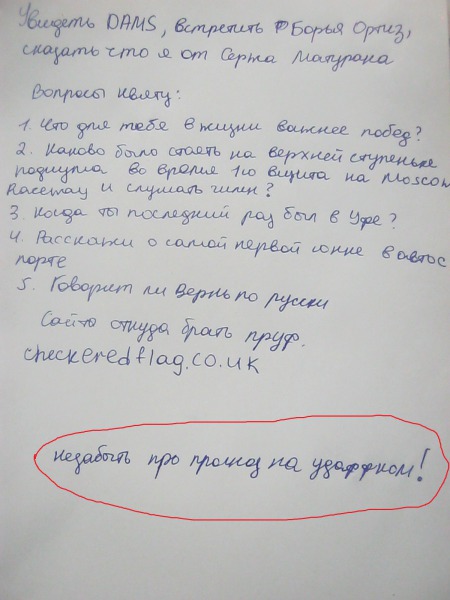 Увидеть DAMS, встретить Борья Ортиз,
сказать что я от Сержа Матурана
Вопросы Квяту:
1. Что для тебя в жизни важнее побед?
2. Каково было стоять на верхней ступеньке
подиума во время 1го визита на Moscow
Raceway и слушать гимн?
3. Когда ты последний раз был в Уфе?
4. Расскажи о самой первой гонке в автос
порте
5. Говорит ли Вернь по русски
откуда брать пруф.
checkeredflag.co.uk
незабыть про прогноз на удаффком!